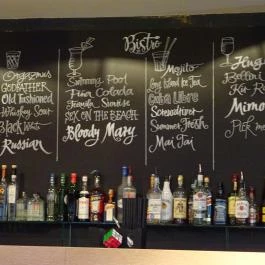 Bistro
Orgasmus
Godfather
Old Fashioned
Whiskey Sour
Black
Russian
Swimming Pool
Pina Colada
Tequila Sunrise
SEX ON THE
BEACH
Bloody Mary
Mojito
Long Island Ice Tea
Cuba Libre
Screwdriver
Summer Fresh
Mai Tai
Hug
Bellini
Kir R
Mimo
Pick me